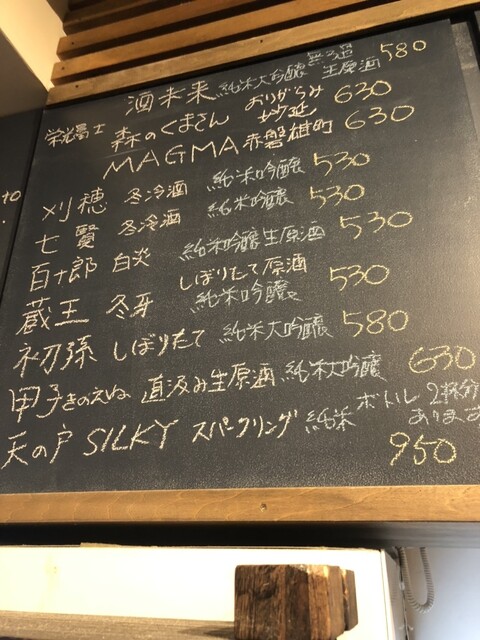 酒未来 純米大吟醸 無ろ過 生原酒 580
栄光冨士 森のくまさん おりがらみ 630
MAGMA 赤磐雄町 630
刈穂 冬冷酒 純米吟醸 530
七賢 冬冷酒 純米吟醸 530
百十郎 白炎 純米吟醸生原酒 530
蔵王 冬芽 しぼりたて原酒 純米吟醸 530
初孫 しぼりたて 純米大吟醸 580
甲子きのえね 直汲み生原酒 純米大吟醸 630
天の戸 SILKY スパークリング 純米 ボトル2杯分あります 950